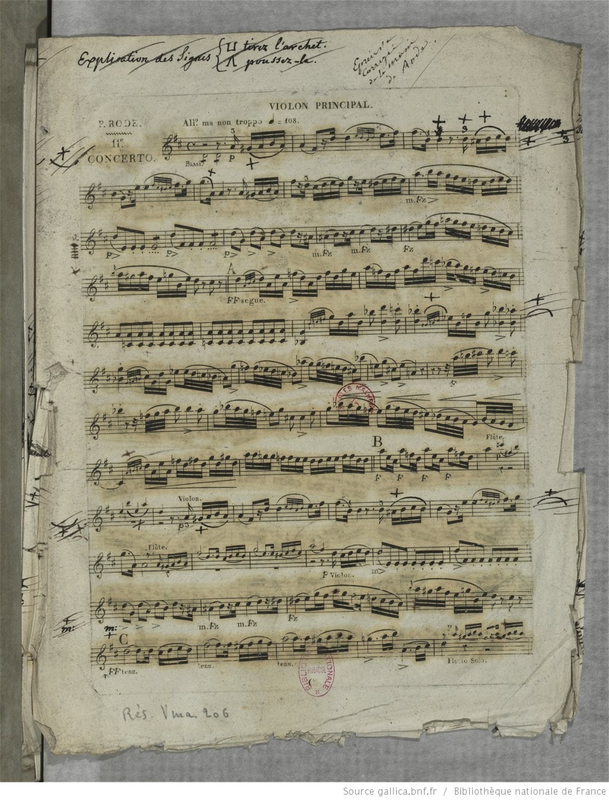 Explication des Signes { ⊓ tirez l'archet.
Λ poussez-le.
Epreuve
corrigée
de la main
de Rode.
VIOLON PRINCIPAL.
P. RODE.
11e
CONCERTO.
All° ma non troppo = 108.
P
m.Fz
P P P P
m.Fz m.Fz Fz
A
FF segue.
B
Flûte.
F F F F
Violon.
P
Flûte.
P Violon.
m.Fz m.Fz Fz
C
FF tenu. tenu. tenu.
Flauto Solo.
Rés. Vma. 206
Source gallica.bnf.fr / Bibliothèque nationale de France